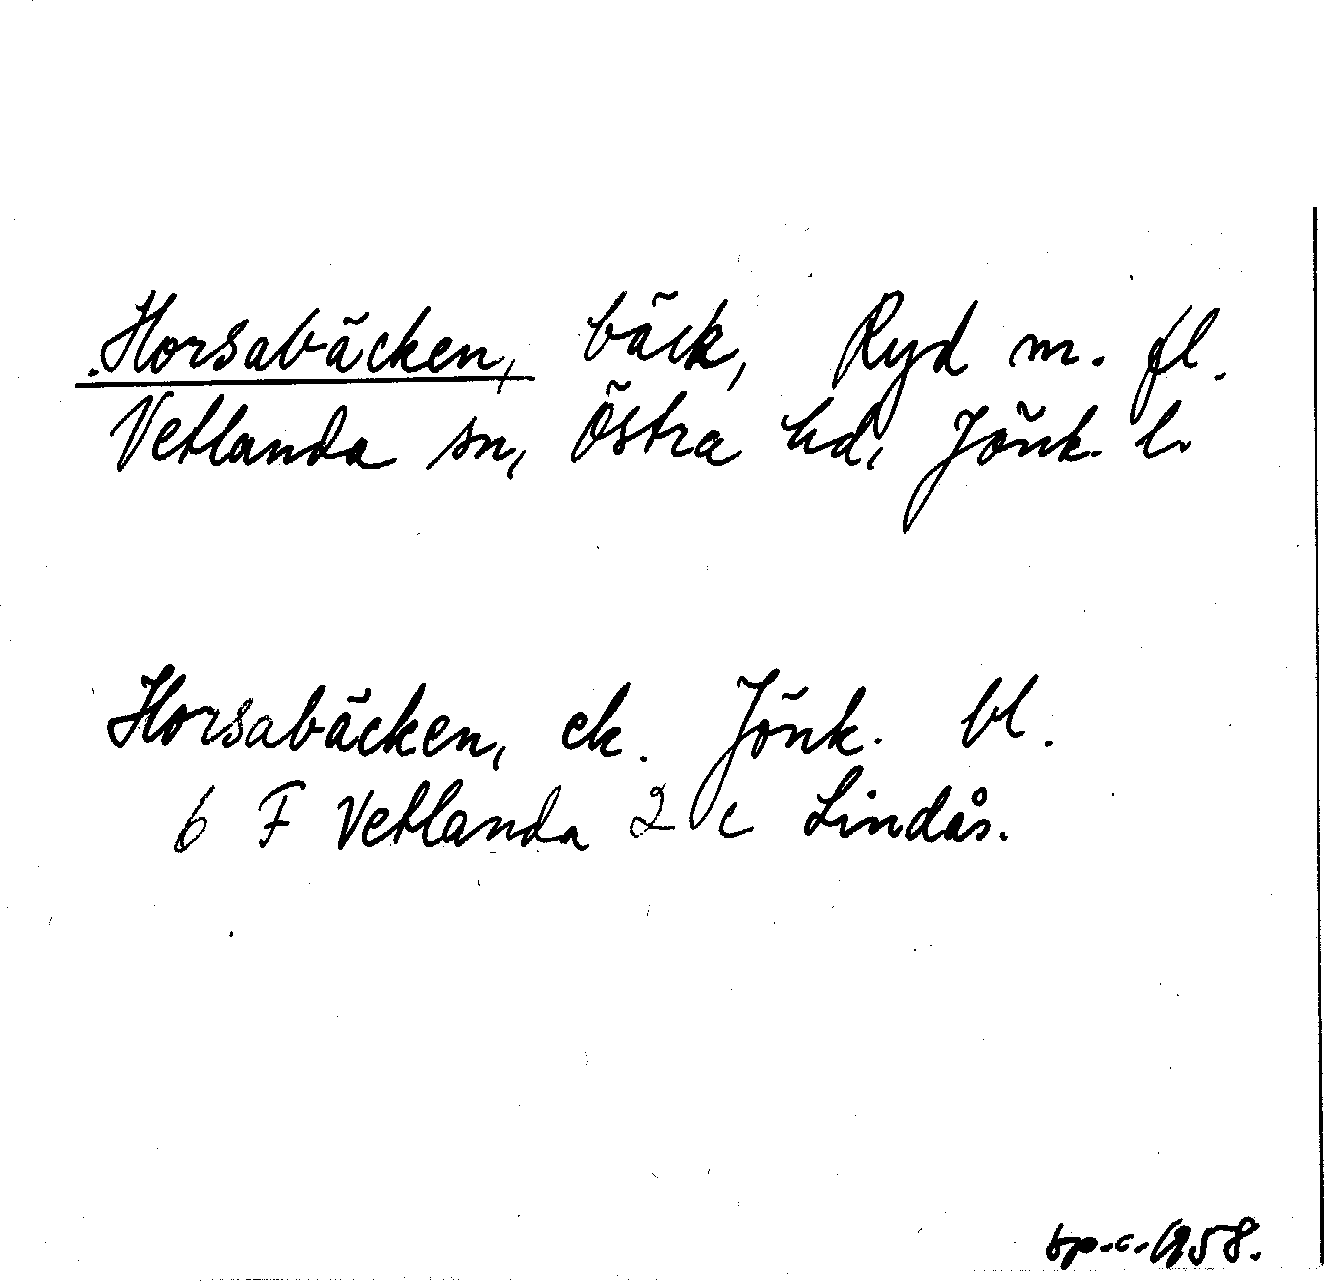 Horsabäcken, bäck, Ryd m. fl.
Vetlanda sn, Östra hd, Jönk. l.
Horsabäcken, ek. Jönk. bl.
6 F Vetlanda 2 c Lindås.
bp.c. 1958.